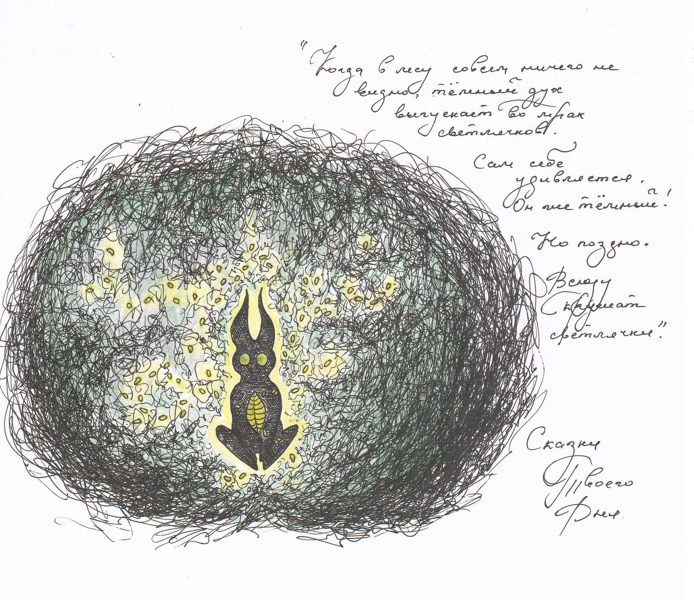 "Когда в лесу совсем ничего не
видно, тёмный дух
выпускает во мрак
светлячков.
Сам себе
удивляется.
Он же тёмный!
Но поздно.
Всюду
светлячки."
Сказки
Твоего
Дня.